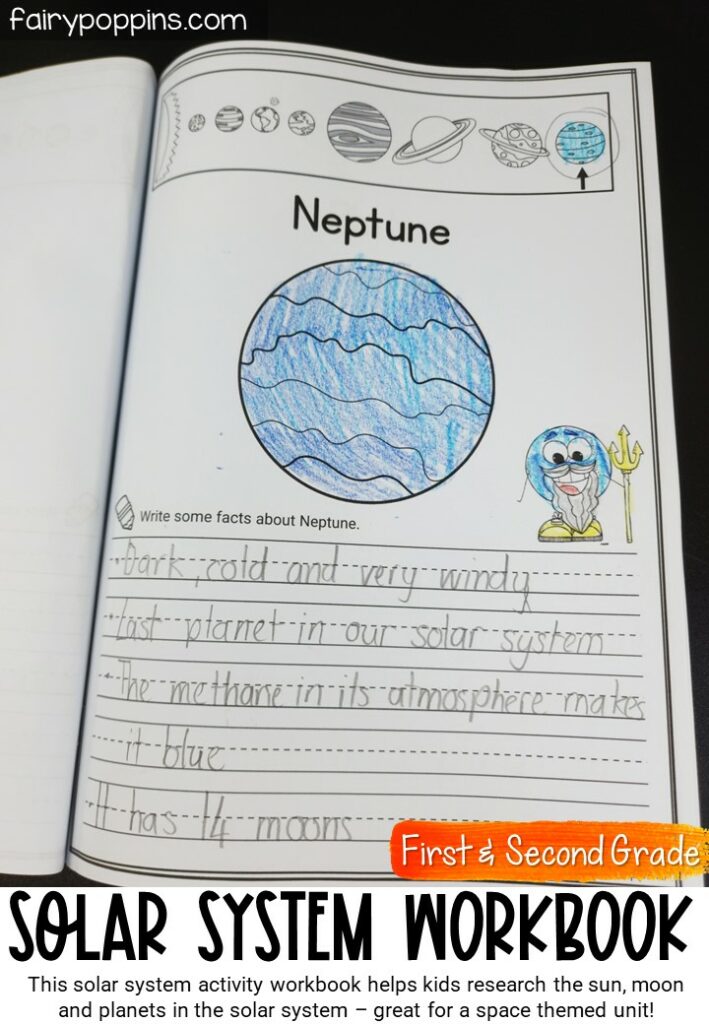 fairypoppins.com
Neptune
Write some facts about Neptune.
. Dark, cold and very windy
. Last planet in our solar system
. The methane in its atmosphere makes
it blue
. It has 14 moons
First & Second Grade
SOLAR SYSTEM WORKBOOK
This solar system activity workbook helps kids research the sun, moon
and planets in the solar system – great for a space themed unit!